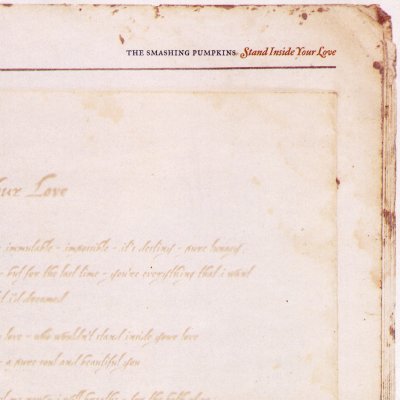 THE SMASHING PUMPKINS: Stand Inside Your Love
our Love
immutable - impossible - it's destiny - pure lunacy
- but for the last time - you're everything that i want
i'd dreamed
love - who wouldn't stand inside your love
- a pure soul and beautiful you